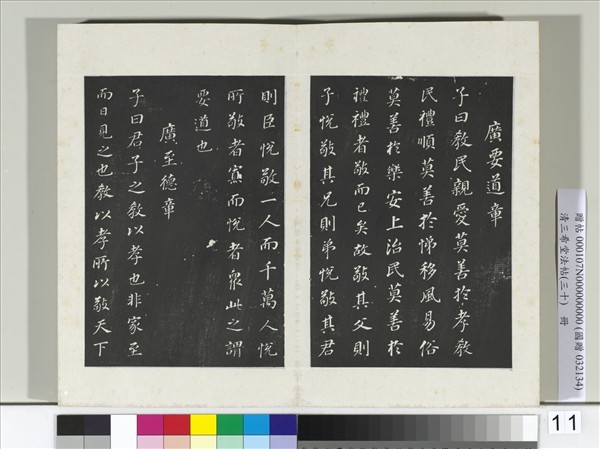 廣要道章
子曰教民親愛莫善於孝教
民禮順莫善於悌移風易俗
莫善於樂安上治民莫善於
禮禮者敬而已矣故敬其父則
子悅敬其兄則弟悅敬其君
則臣悅敬一人而千萬人悅
所敬者寡而悅者衆此之謂
要道也
廣至德章
子曰君子之教以孝也非家至
而日見之也教以孝所以敬天下
贈帖 000107N000000000 (國贈 032134)
清三希堂法帖(三十) 冊
11